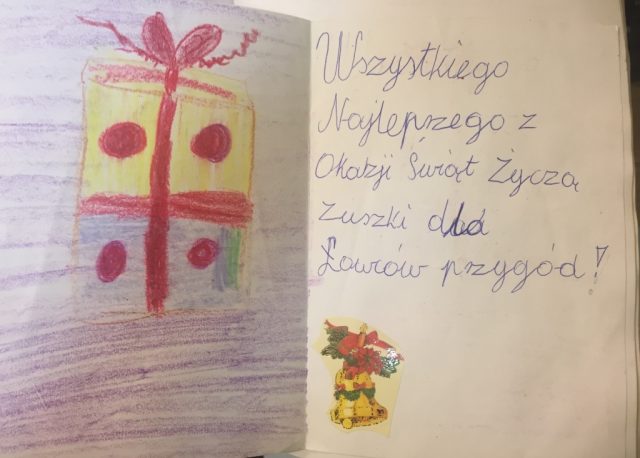 Wszystkiego
Najlepszego z
Okazji Świąt Życzą
Zuszki dla
Łowców przygód!